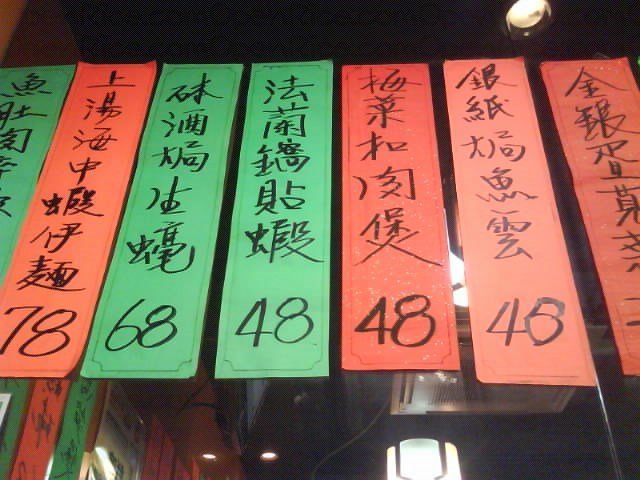 上湯海中蝦伊麵
78
砵酒焗生蠔
68
法蘭鑊貼蝦
48
梅菜扣肉煲
48
銀紙焗魚雲
48
金銀蛋莧菜